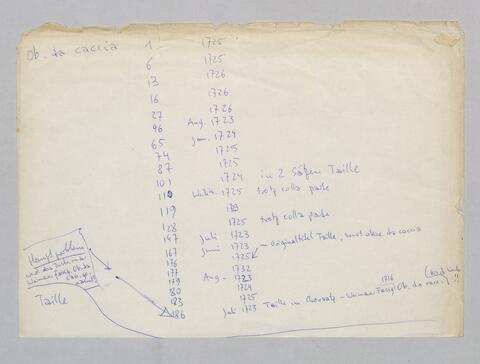 Ob. da caccia 1 1725
6 1725
13 1726
16 1726
27 1726
96 Aug. 1723
65 Jan. 1724
74 1725
87 1725
101 1724 in 2 Sätzen Taille
110 1725 trotz colla parte
119
128 1725 trotz colla parte
147 Juli 1723
167 Juni 1723 im Originaltitel Taille, sonst oboe da caccia
176 1725
177 1732
179 Aug. 1723
80 1724
183 1725
186 Juli 1723 Taille in Choral – Weimarer Fassg. Ob. da cacc. !!
1716
Hauptproblem
Weimarer Fassg. Ob. da
Taille